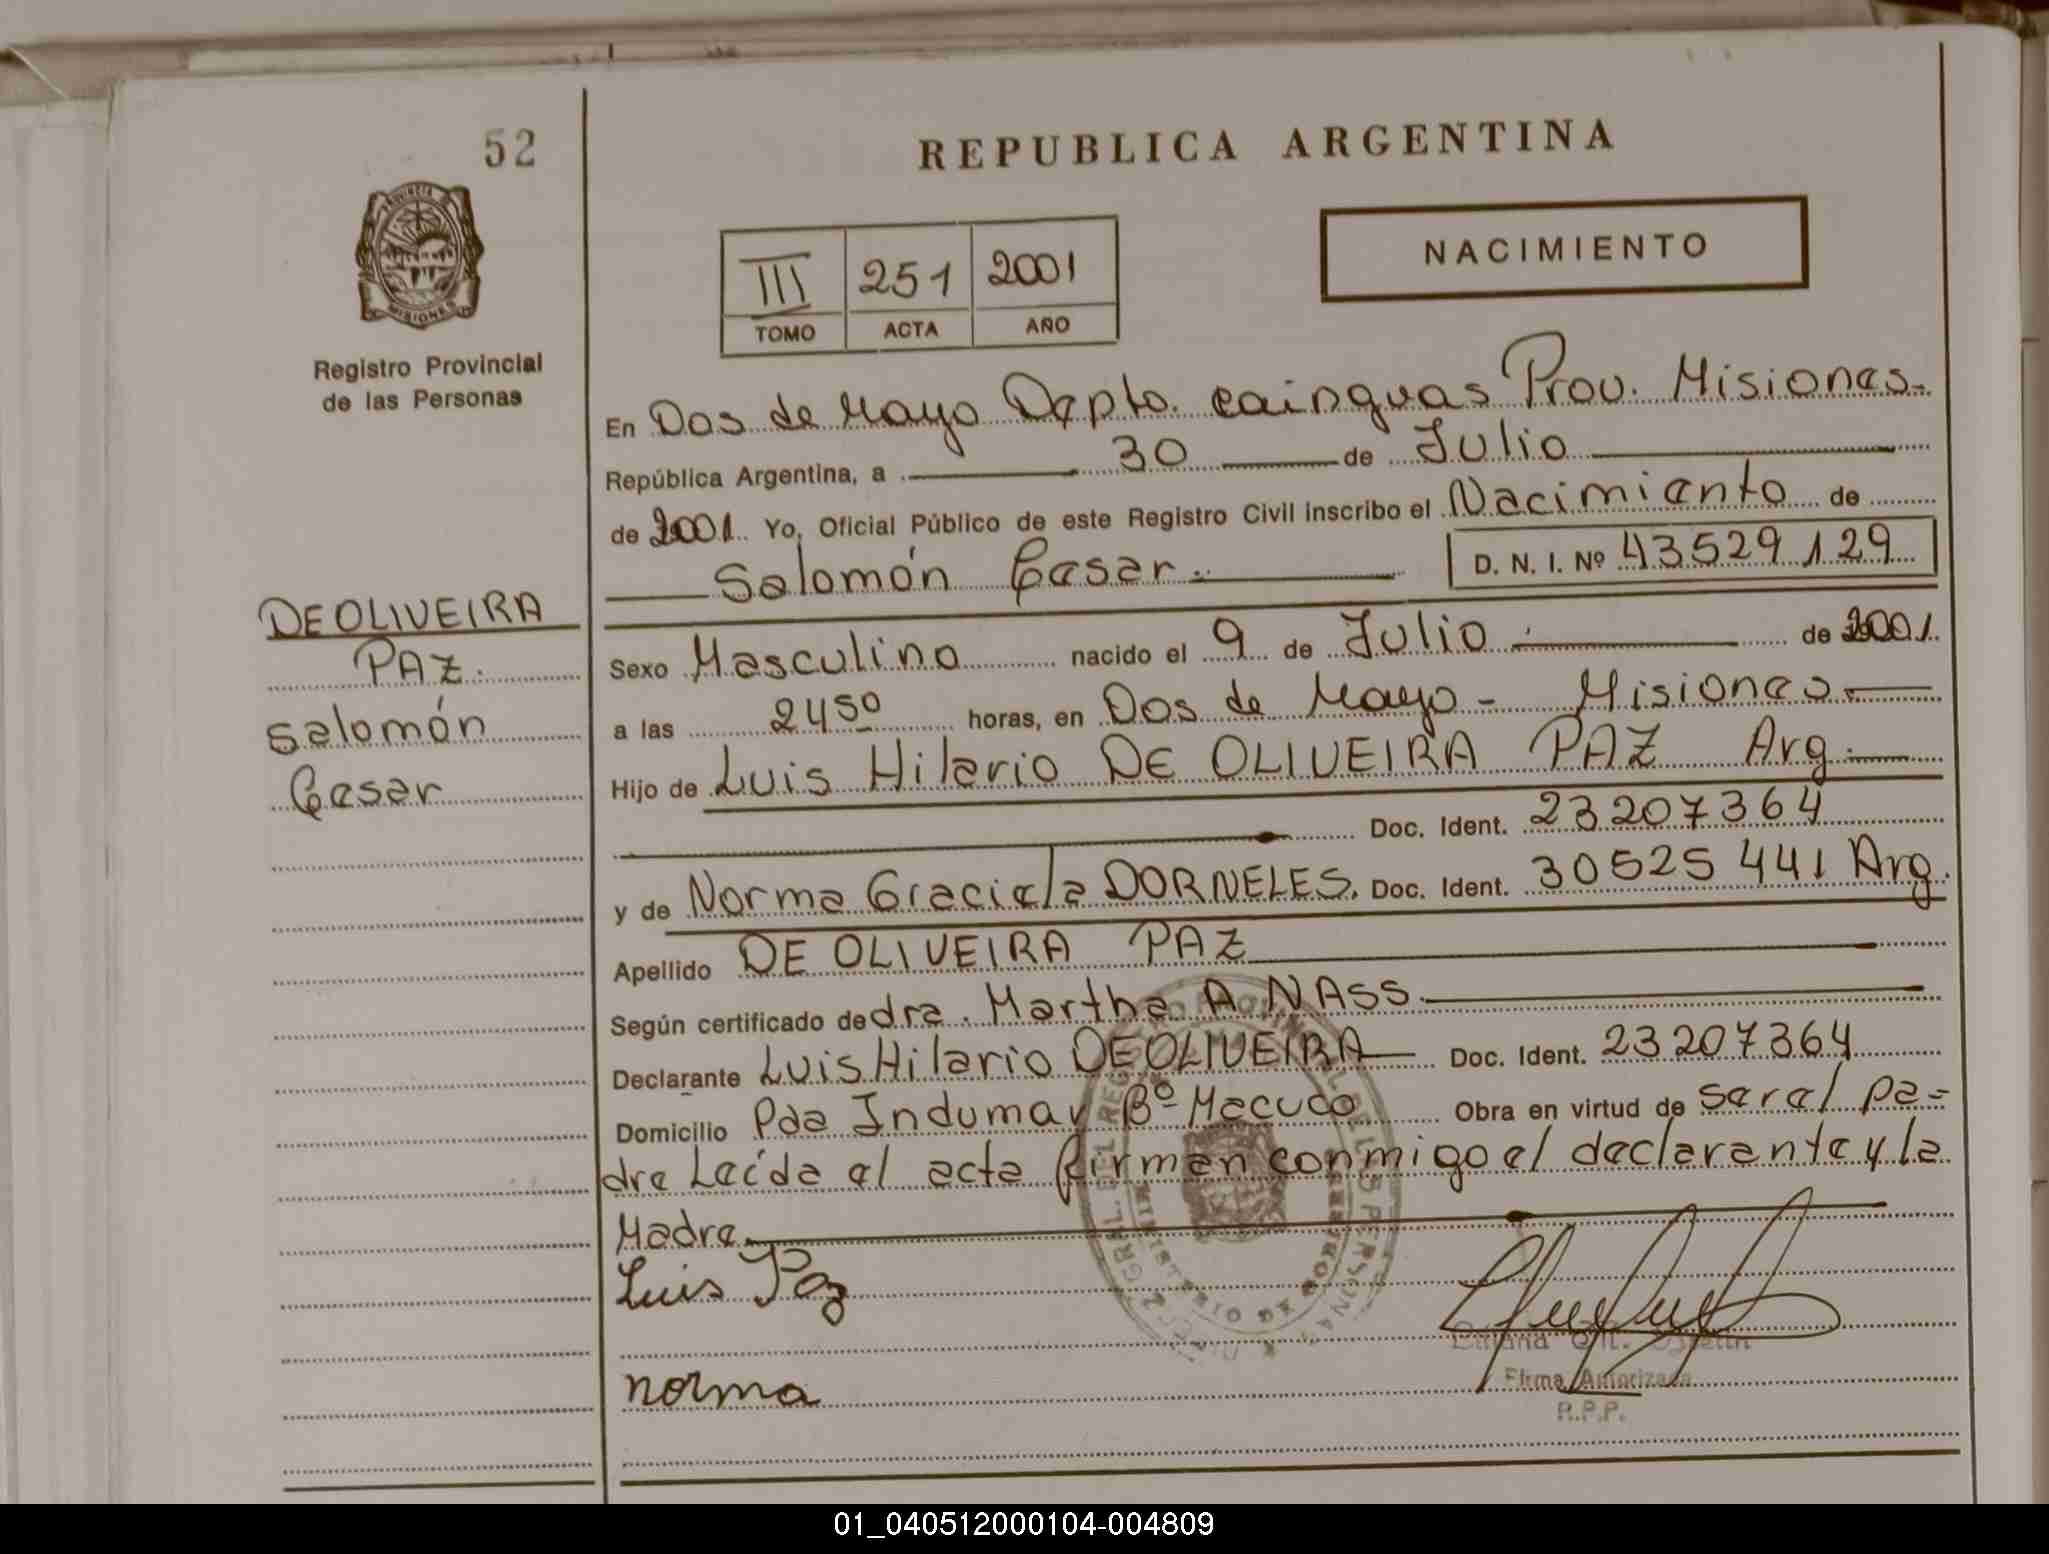 52
REPUBLICA ARGENTINA
PROVINCIA
MISIONES
Registro Provincial
de las Personas
III 251 2001
TOMO ACTA AÑO
NACIMIENTO
En Dos de Mayo Depto. Cainguas Prov. Misiones.
República Argentina, a 30 de Julio
de 2001. Yo, Oficial Público de este Registro Civil inscribo el Nacimiento de
Salomón Cesar. D. N. I. Nº 43529129
DE OLIVEIRA
PAZ.
Salomón
Cesar
Sexo Masculino nacido el 9 de Julio de 2001.
a las 24⁵⁰ horas, en Dos de Mayo - Misiones.
Hijo de Luis Hilario DE OLIVEIRA PAZ Arg.
Doc. Ident. 23207364
y de Norma Graciela DORNELES. Doc. Ident. 30525441 Arg.
Apellido DE OLIVEIRA PAZ
Según certificado de dra. Martha A NASS.
Declarante Luis Hilario DE OLIVEIRA Doc. Ident. 23207364
Domicilio Pda Indumar Bº Macuco Obra en virtud de ser el pa=
dre Leída el acta firman conmigo el declarante y la
Madre.
Luis Paz
norma
Firma Autorizada
R.P.P.
01_040512000104-004809